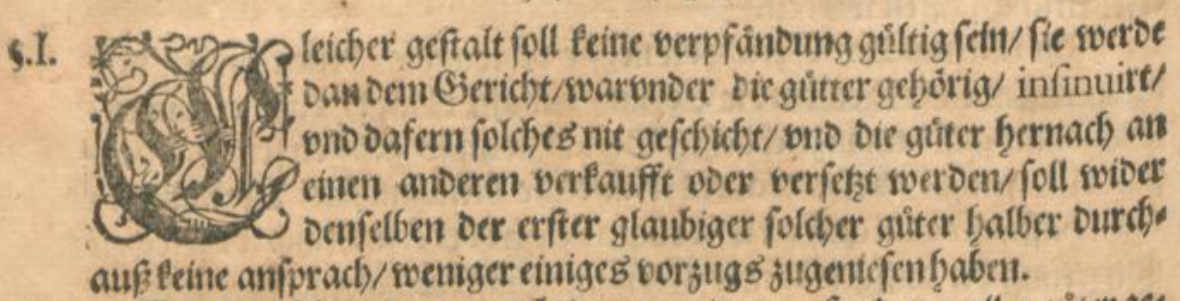 §.I. Gleicher gestalt soll keine verpfändung gültig sein/ sie werde
dan dem Gericht/ warvnder die gütter gehörig/ insinuirt/
vnd dafern solches nit geschicht/ vnd die güter hernach an
einen anderen verkaufft oder versetzt werden/ soll wider
denselben der erster glaubiger solcher güter halber durch-
auß keine ansprach/ weniger einiges vorzugs zugeniesen haben.